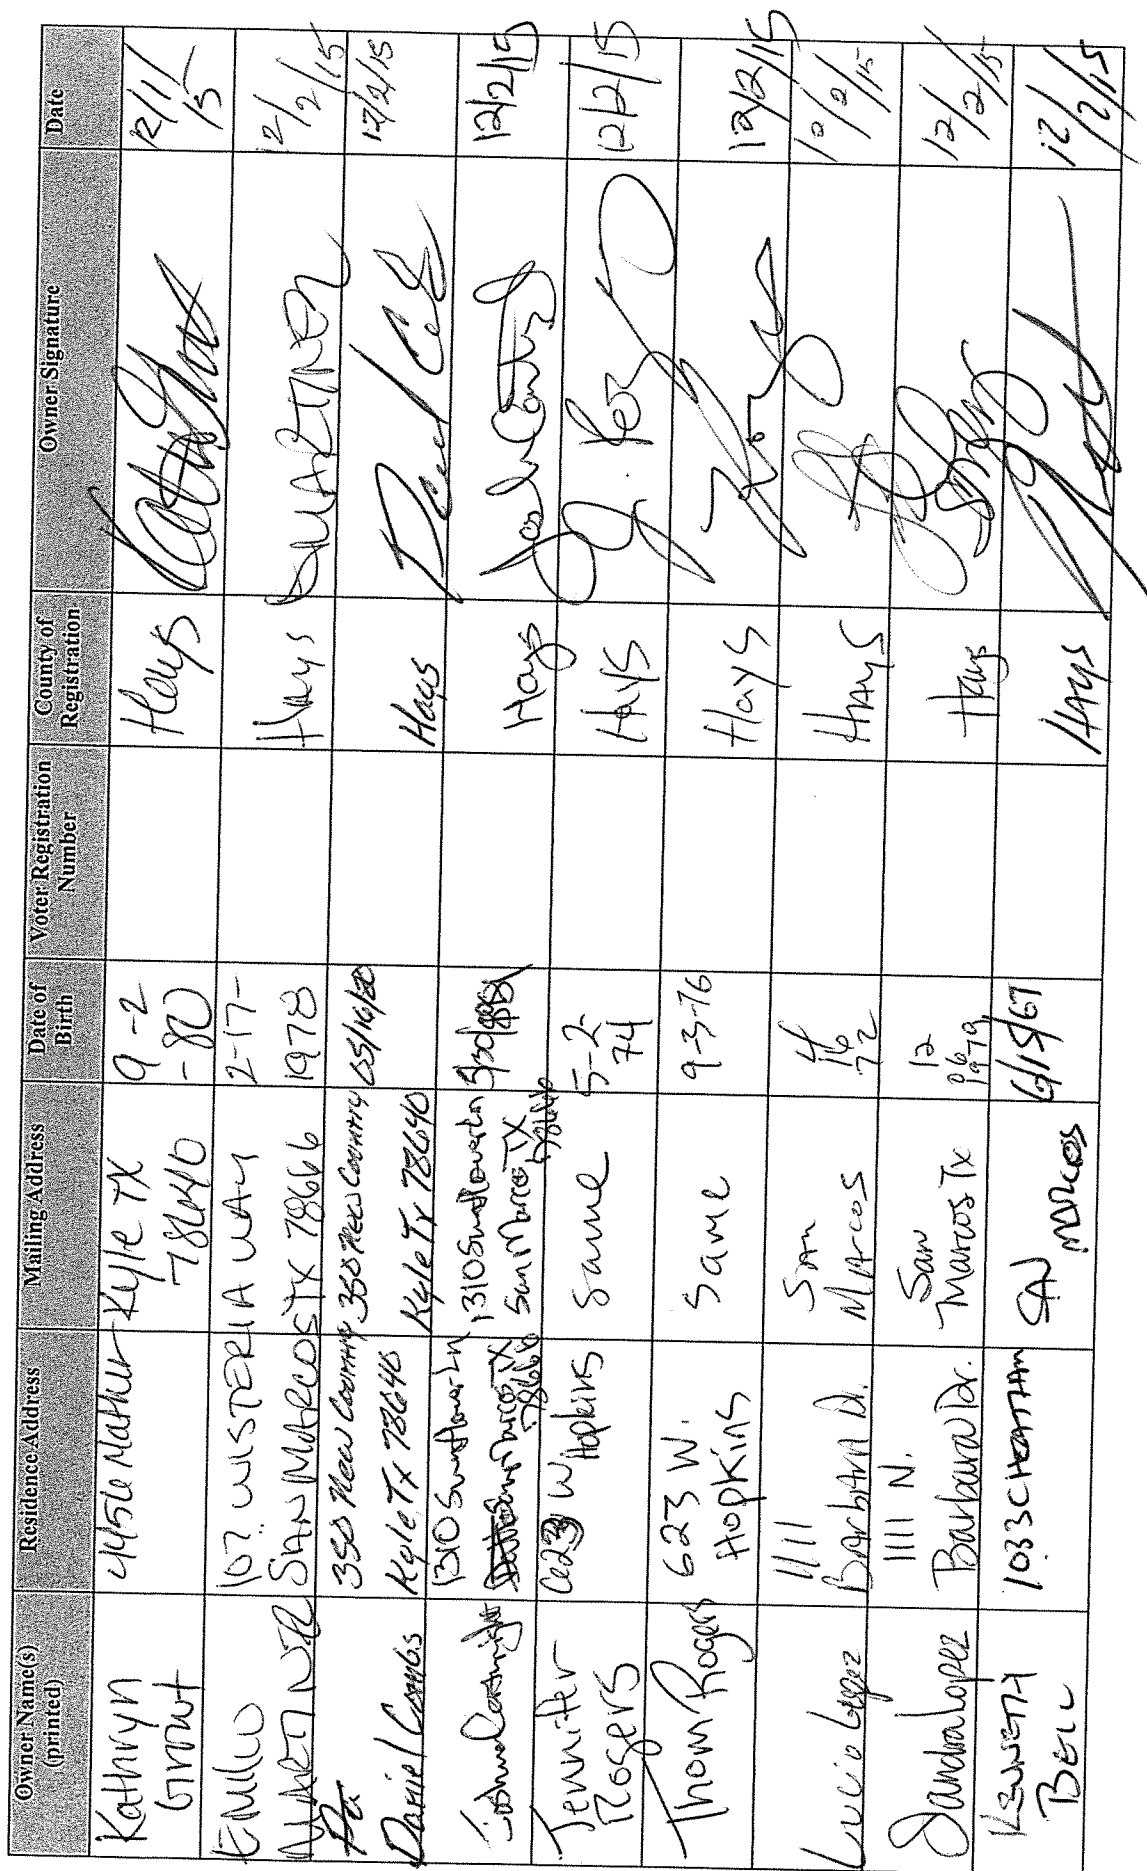 Owner Name(s) (printed) Residence Address Mailing Address Date of Birth Voter Registration Number County of Registration Owner Signature Date
Kathryn Grant 4456 Mathur Kyle TX 78640 9-2-80 Hays 12/11/15
Emilio Martinez 107 WISTERIA WAY SAN MARCOS TX 78666 2-17-1978 Hays 12/2/15
Daniel Combs 350 New Country Kyle Tx 78640 350 New Country Kyle Tx 78640 Hays 12/2/15
Joshua Cartwright 1310 Sunflower Ln San Marcos TX 78666 1310 Sunflower Ln San Marcos TX 78666 Hays 12/2/15
Jennifer Rogers W Hopkins Same 5-2-74 Hays J. Rogers 12/2/15
Thom Rogers 623 W. Hopkins Same 9-3-76 Hays 12/2/15
Lucio Lopez 1111 Barbara Dr. San Marcos 4 16 72 Hays
Sandra Lopez 1111 N. Barbara Dr. San Marcos Tx 12 06 1979 Hays 12/2/15
KENNETH BELL 1033 CHEATHAM SAN MARCOS 6/15/67 HAYS 12/2/15